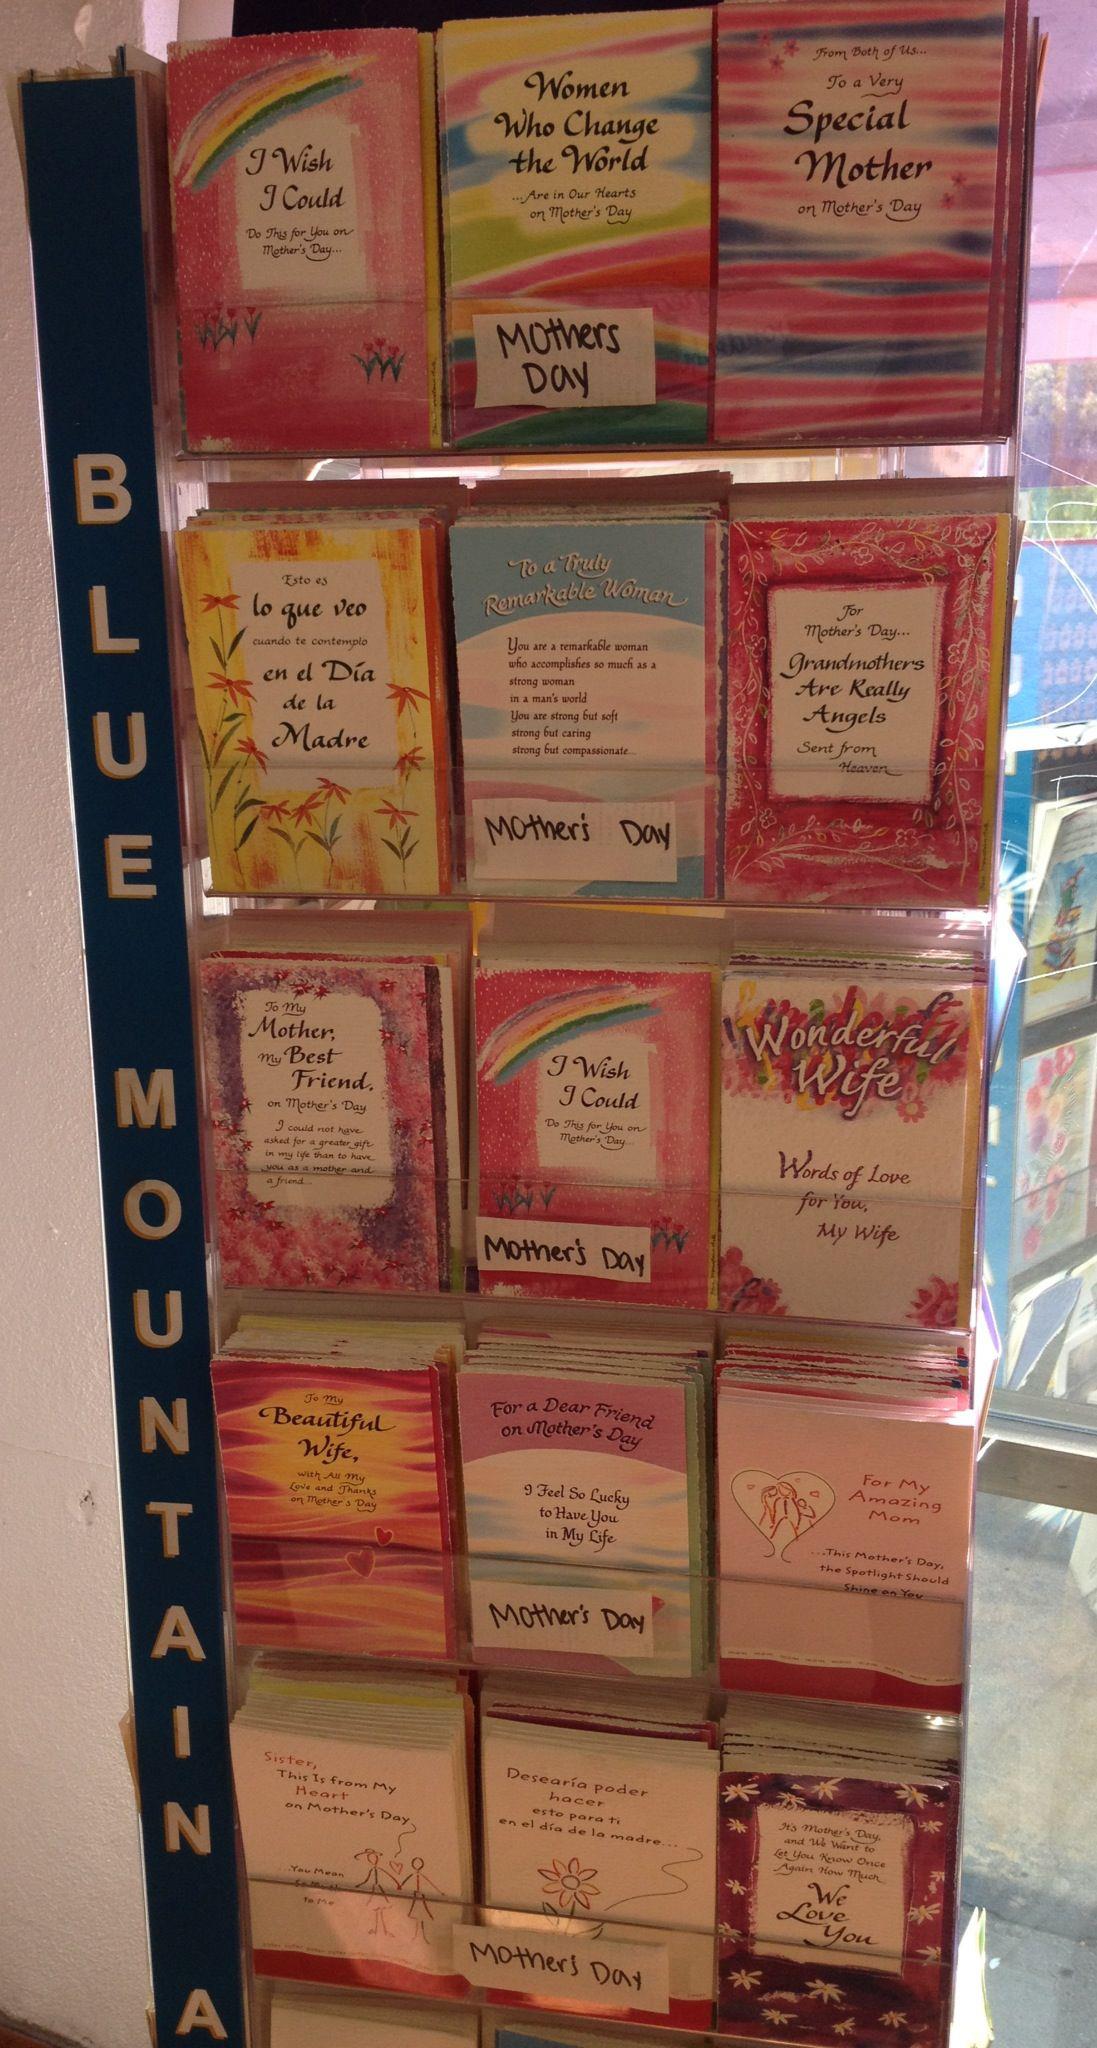 BLUE MOUNTAIN A
I Wish
I Could
Do This for You on
Mother's Day...
Women
Who Change
the World
...Are in Our Hearts
on Mother's Day
From Both of Us...
To a Very
Special
Mother
on Mother's Day
MOthers
DAy
Esto es
lo que veo
cuando te contemplo
en el Día
de la
Madre
To a Truly
Remarkable Woman
You are a remarkable woman
who accomplishes so much as a
strong woman
in a man's world
You are strong but soft
strong but caring
strong but compassionate...
For
Mother's Day...
Grandmothers
Are Really
Angels
Sent from
Heaven
MOther's DAy
To My
Mother,
My Best
Friend,
on Mother's Day
I could not have
asked for a greater gift
in my life than to have
you as a mother and
a friend...
I Wish
I Could
Do This for You on
Mother's Day...
Wonderful
Wife
Words of Love
for You,
My Wife
MOther's DAy
To My
Beautiful
Wife,
with All My
Love and Thanks
on Mother's Day
For a Dear Friend
on Mother's Day
I Feel So Lucky
to Have You
in My Life
For My
Amazing
Mom
...This Mother's Day,
the Spotlight Should
Shine on You
MOther's DAy
Sister,
This Is from My
Heart
on Mother's Day
...You Mean
So Much
to Me
Desearía poder
hacer
esto para ti
en el día de la madre...
It's Mother's Day,
and We Want to
Let You Know Once
Again How Much
We
Love
You
MOther's DAy